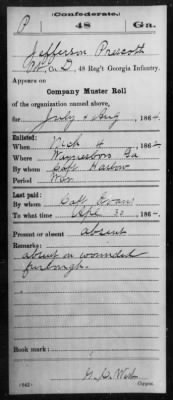 (Confederate.)
P 48 Ga.
Jefferson Prescott
Pvt, Co. D, 48 Reg't Georgia Infantry.
Appears on
Company Muster Roll
of the organization named above,
for July & Aug, 1864.
Enlisted:
When Mch 4, 1862
Where Waynesboro Ga
By whom Capt Harlow
Period War
Last paid:
By whom Capt Evans
To what time Apl 30, 1864.
Present or absent absent
Remarks:
absent on wounded
furlough.
Book mark:
(642)
Copyist.